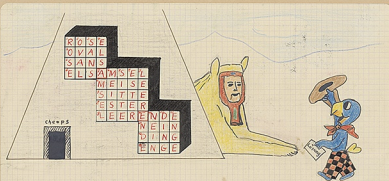 ROSE
OVAL
SANS
ELSAMSEL
MEISE
SITTE
ESTER
LEERENDE
NEIN
DING
ENGE
cheops